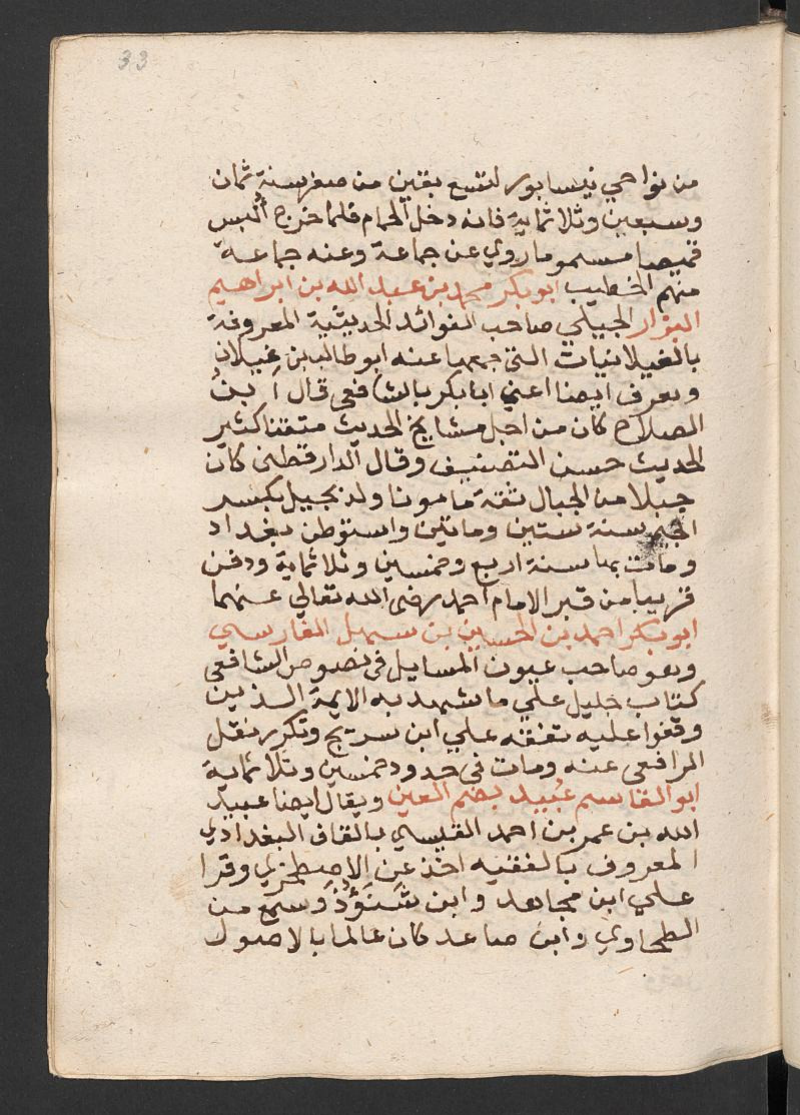 33
من نواحي نيسابور لتسع بقين من صفر سنة ثمان
وسبعين وثلاثماية فانه دخل الحمام فلما خرج ألبس
قميصا مسموما روي عن جماعة وعنه جماعة
منهم الخطيب ابو بكر محمد بن عبد الله بن ابراهيم
البزار الجبيلي صاحب الفوائد الحديثية المعروفة
بالغيلانيات التي جمعها عنه ابو طالب بن غيلان
ويعرف ايضا اعني ابا بكر بالشافعي قال ابن
الصلاح كان من اجل مشايخ الحديث متقنا كثير
الحديث حسن التصنيف وقال الدارقطني كان
جبلا من الجبال ثقة مامونا ولد بجيل بكسر
الجيم سنة ستين وماتين واستوطن بغداد
ومات بها سنة اربع وخمسين وثلاثماية ودفن
قريبا من قبر الامام احمد رضي الله تعالي عنهما
ابو بكر احمد بن الحسين بن سهيل الفارسي
وهو صاحب عيون المسايل في نصوص الشافعي
كتاب جليل علي ما شهد به الايمة الذين
وقفوا عليه تفقه علي ابن سريج وتكرر نقل
الرافعي عنه ومات في حدود خمسين وثلاثماية
ابو القاسم عُبيد بضم العين ويقال ايضا عبيد
الله بن عمر بن احمد القيسي بالقاف البغدادي
المعروف بالفقيه اخذ عن الاصطخري وقرا
علي ابن مجاهد وابن شنَبُوذ وسمع من
الطحاوي وابن صاعد كان عالما بالاصول